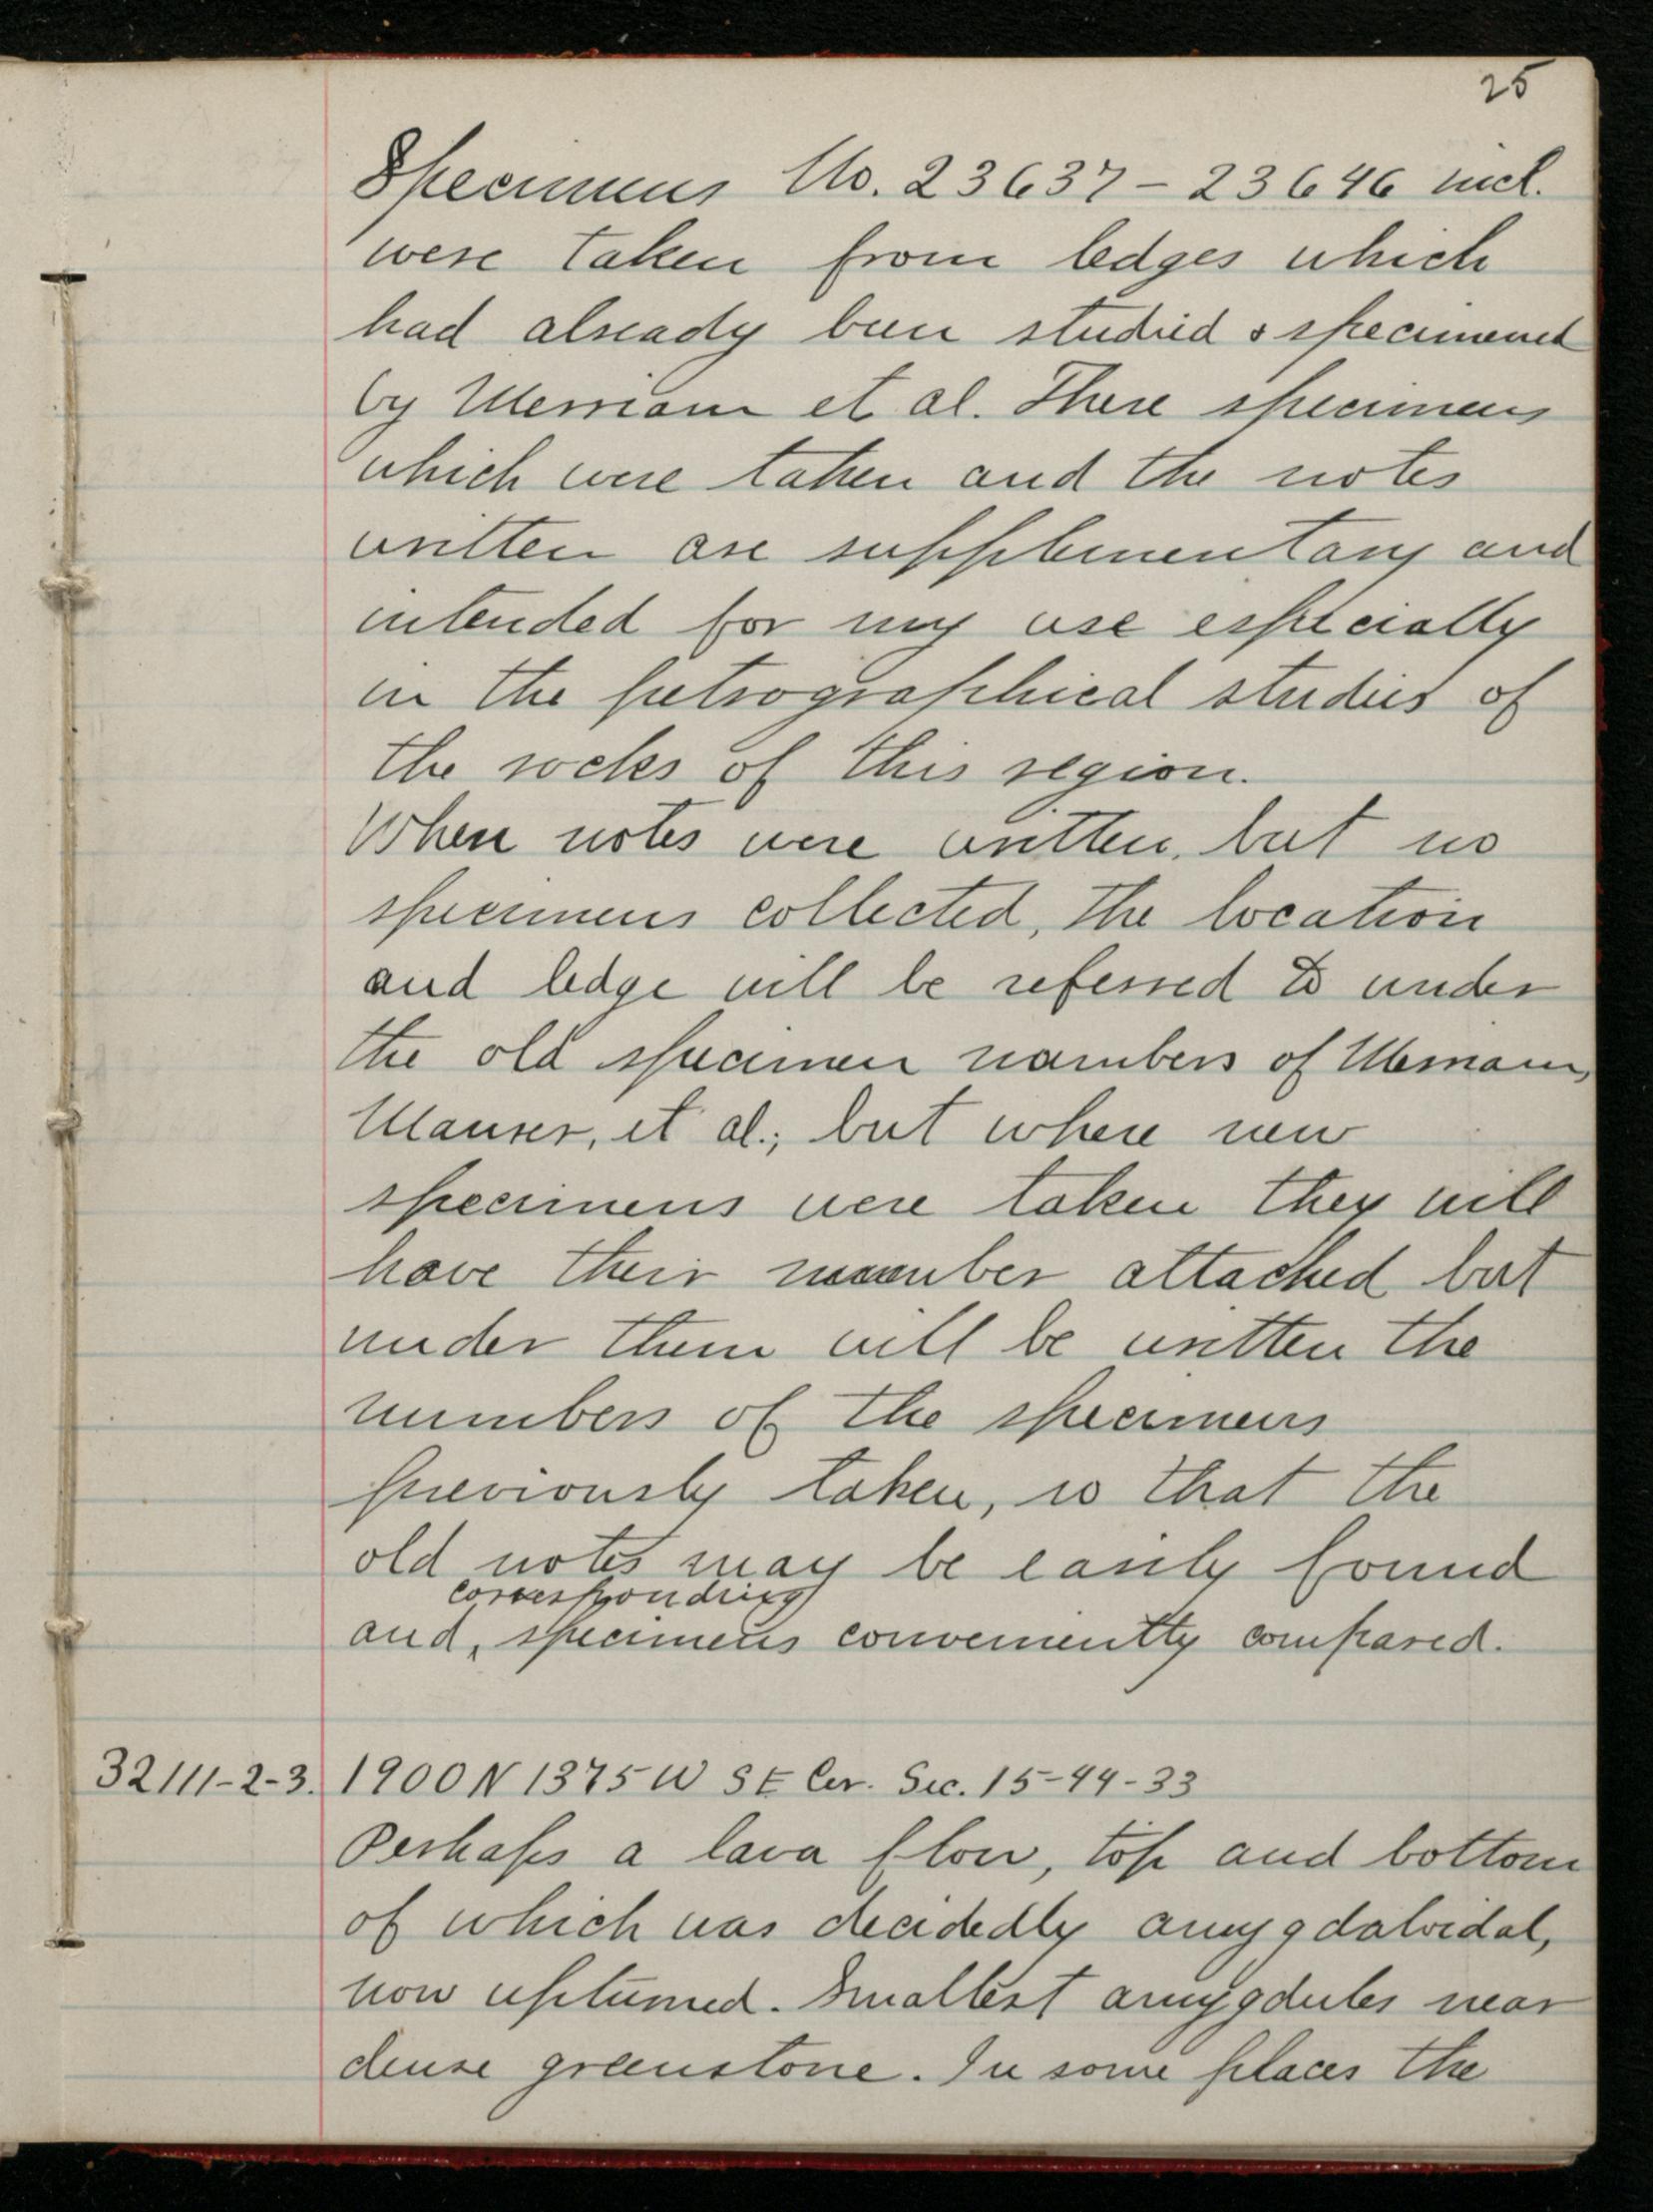 25
Specimens No. 23637-23646 incl.
were taken from ledges which
had already been studied & specimened
by Merriam et al. These specimens
which were taken and the notes
written are supplementary and
intended for my use especially
in the petrographical studies of
the rocks of this region.
When notes were written, but no
specimens collected, the location
and ledge will be referred to under
the old specimen numbers of Merriam,
et al.; but where new
specimens were taken they will
have their number attached but
under them will be written the
numbers of the specimens
previously taken, so that the
old notes may be easily found
corresponding
and, specimens conveniently compared.
32111-2-3. 1900 N 1375 W SE Cor. Sec. 15-44-33
Perhaps a lava flow, top and bottom
of which was decidedly amygdaloidal,
now upturned. Smallest amygdules near
dense greenstone. In some places the